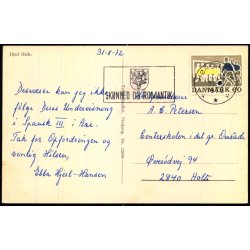 Hjørl Hede.
31-8-72
SKØNHED OG ROMANTIK
DANMARK 60
Desværre kan jeg ikke
følge Deres Undervisning
i Spansk III i Aar.
Tak for Opfordringen og
venlig Hilsen,
Ebba Hjert-Hansen
A. C. Petersen
Centerskolen i det gr. Område
Øverødvej 94
2840 Holte